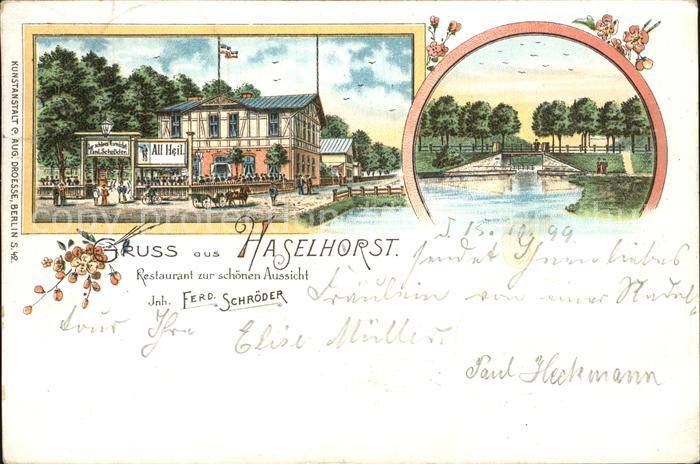 KUNSTANSTALT C. AUG. DROESSE, BERLIN S. 42.
Zur schönen Aussicht
Ferd. Schröder
All Heil
GRUSS aus HASELHORST.
Restaurant zur schönen Aussicht
Jnh. FERD. SCHRÖDER
15. 10. 99
sendet Ihnen liebes
Fräulein von einer Radel-
tour Ihr
Elise Müller.
Paul Heckmann